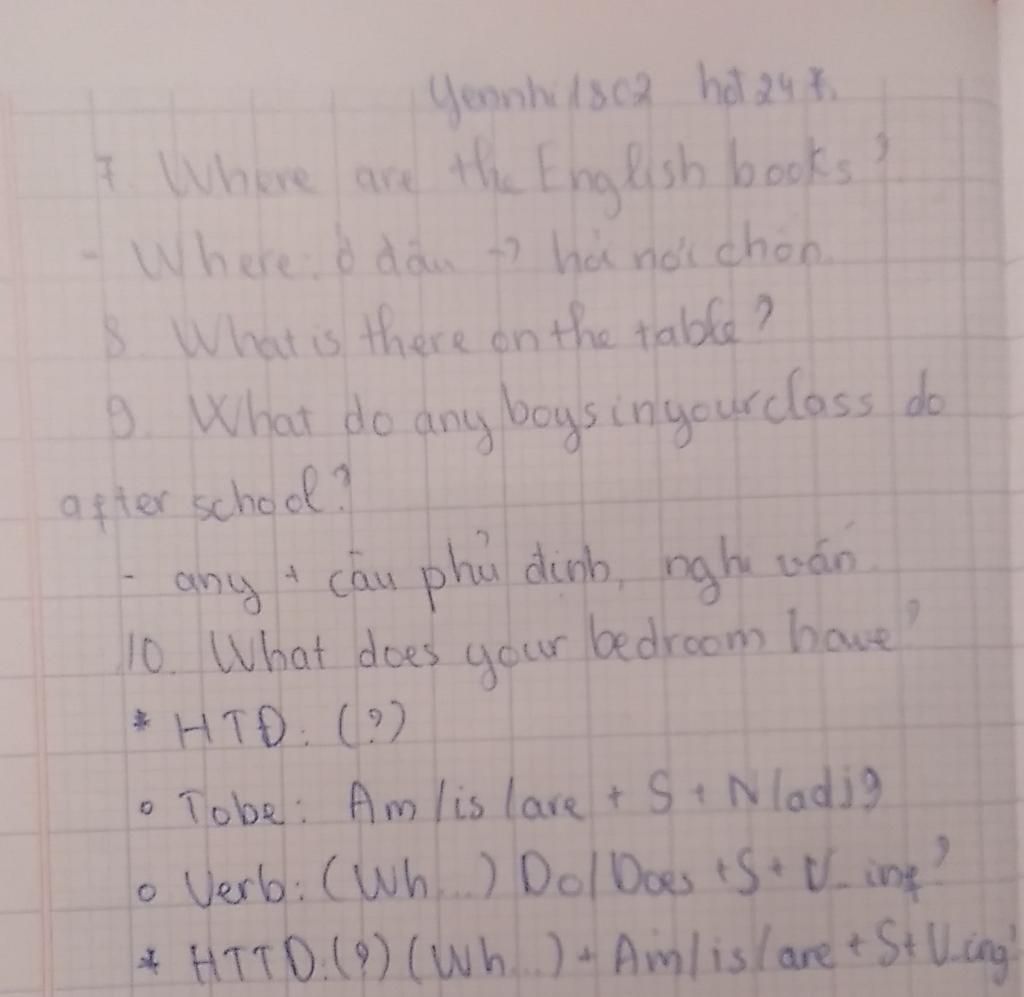 Yennhi1802 hd 247.
7. Where are the English books?
- Where: ở đâu → hỏi nơi chốn
8. What is there on the table?
9. What do any boys in your class do
after school?
- any + câu phủ định, nghi vấn
10. What does your bedroom have?
* HTĐ: (?)
o Tobe: Am/is/are + S + N/adj?
o Verb: (Wh...) Do/Does + S + V_inf?
* HTTD: (?) (Wh...) + Am/is/are + S + V_ing?